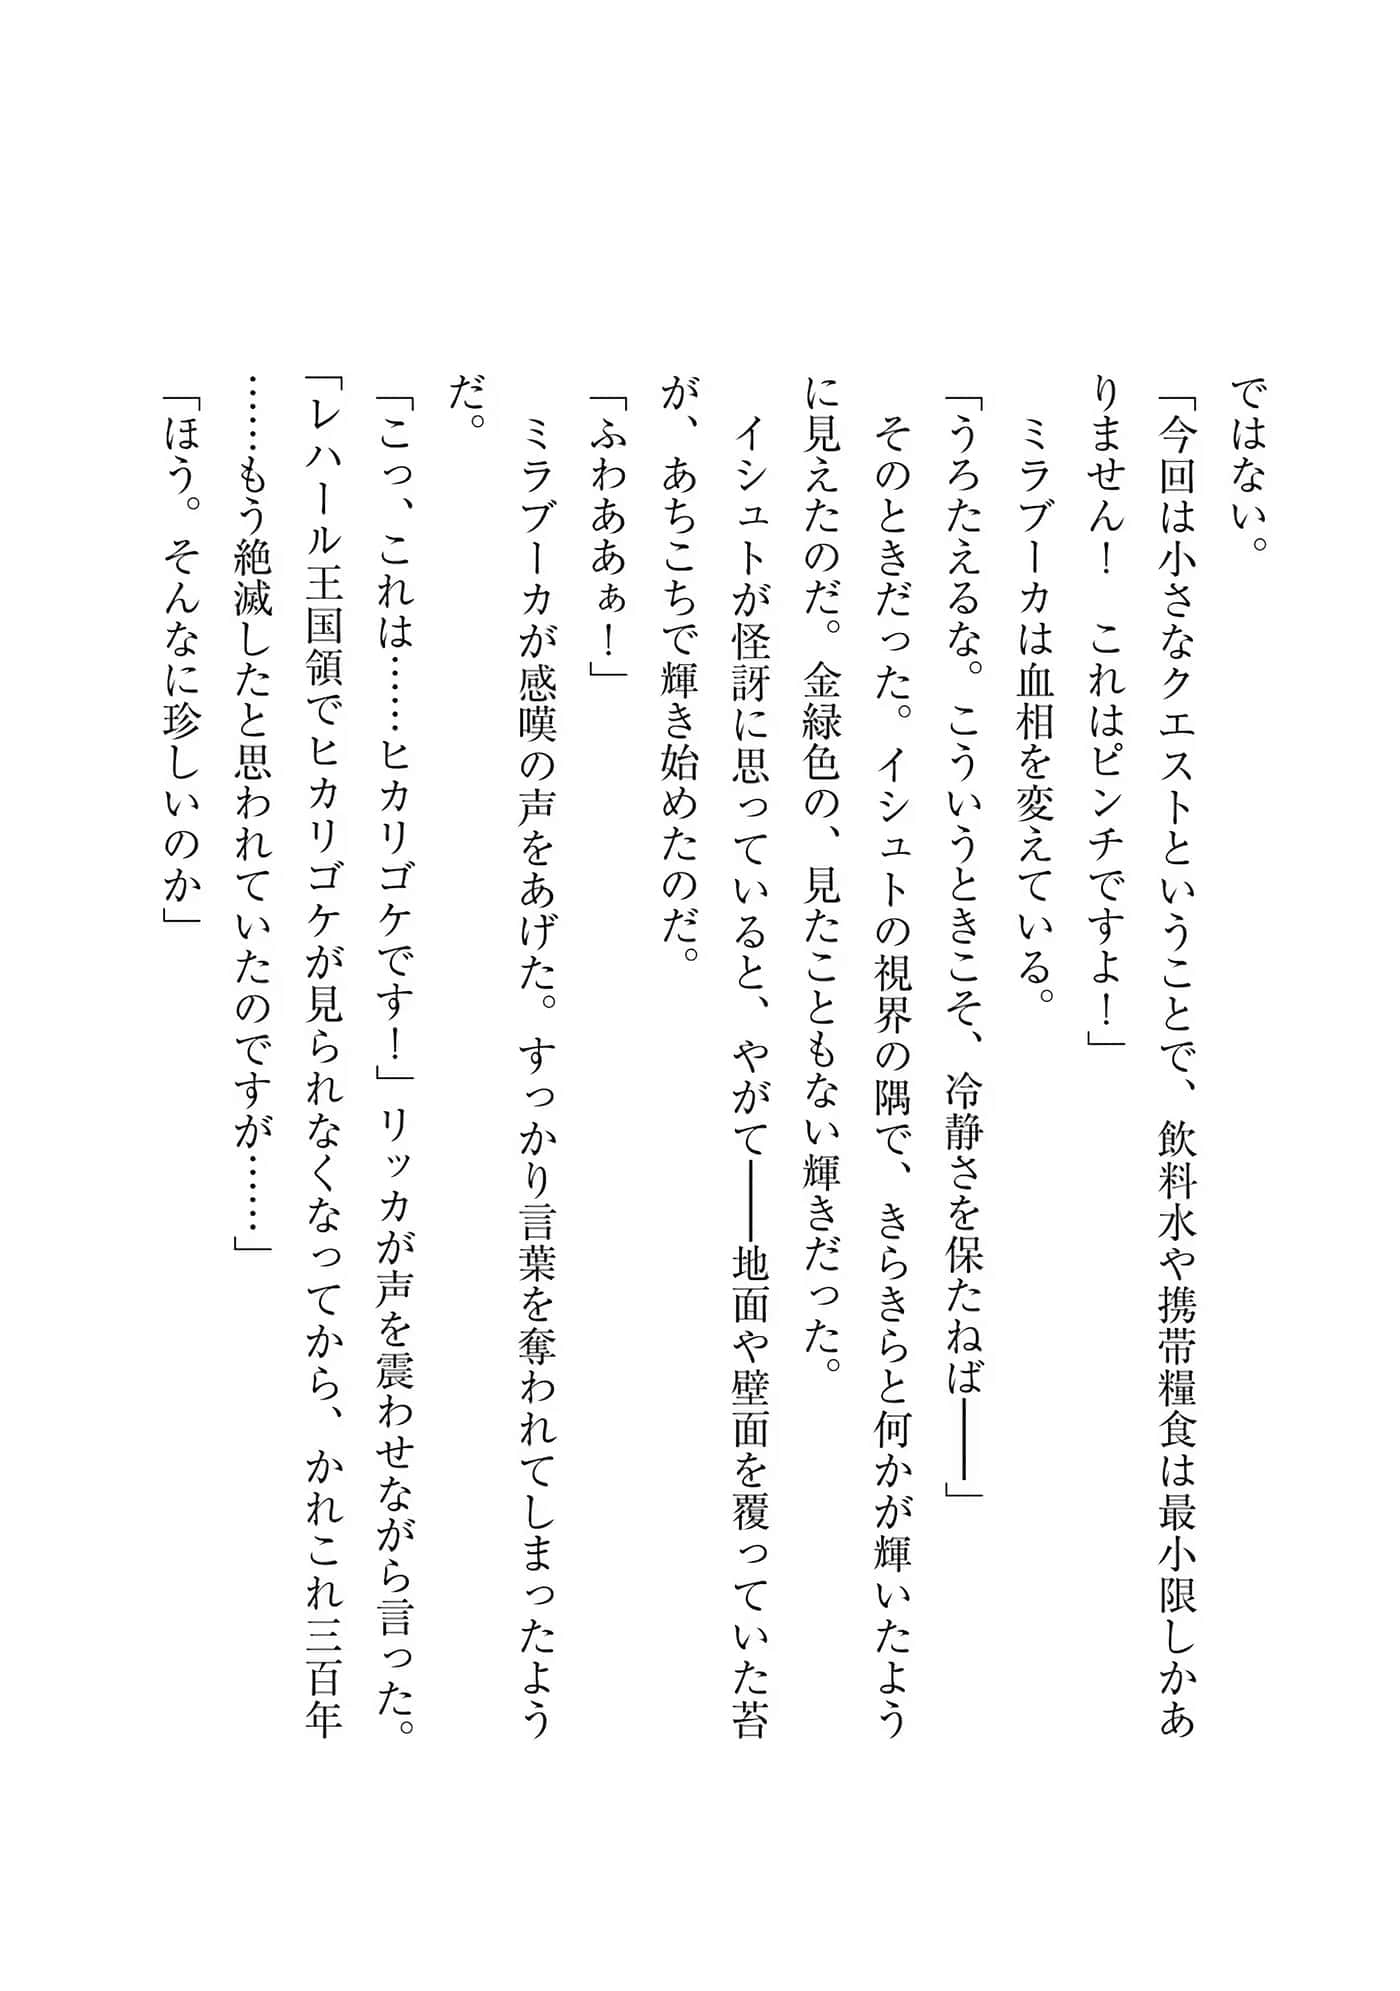 ではない。
「今回は小さなクエストということで、飲料水や携帯糧食は最小限しかあ
りません！　これはピンチですよ！」
　ミラブーカは血相を変えている。
「うろたえるな。こういうときこそ、冷静さを保たねば――」
　そのときだった。イシュトの視界の隅で、きらきらと何かが輝いたよう
に見えたのだ。金緑色の、見たこともない輝きだった。
　イシュトが怪訝に思っていると、やがて――地面や壁面を覆っていた苔
が、あちこちで輝き始めたのだ。
「ふわああぁ！」
　ミラブーカが感嘆の声をあげた。すっかり言葉を奪われてしまったよう
だ。
「こっ、これは……ヒカリゴケです！」リッカが声を震わせながら言った。
「レハール王国領でヒカリゴケが見られなくなってから、かれこれ三百年
……もう絶滅したと思われていたのですが……」
「ほう。そんなに珍しいのか」